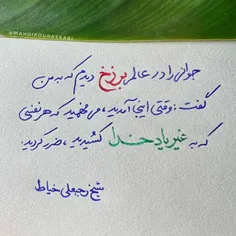 @MAHDIPOURASKARI
جوانی را در عالم برزخ دیدم که به من
گفت: وقتی اینجا آمدید، می فهمید که هر نفسی
که به غیر یاد خدا کشیدید، ضرر کردید.
شیخ رجبعلی خیاط